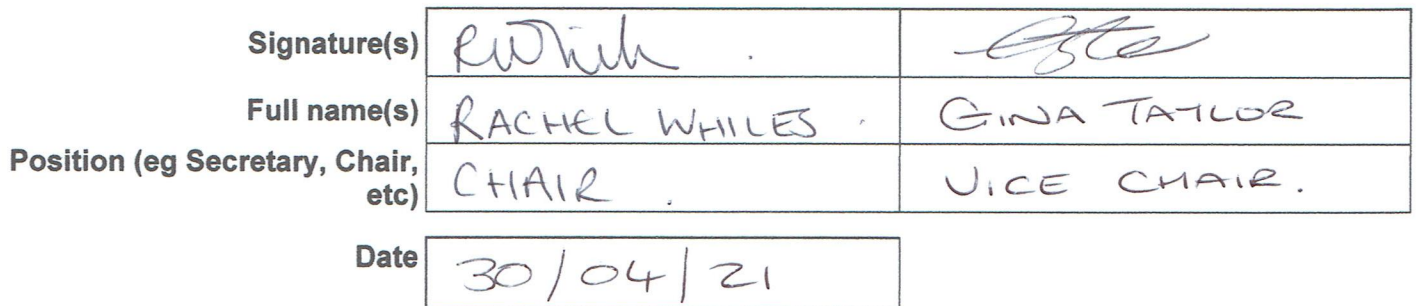 Signature(s)
Full name(s) RACHEL WHILES GINA TAYLOR
Position (eg Secretary, Chair, etc) CHAIR. VICE CHAIR.
Date 30/04/21